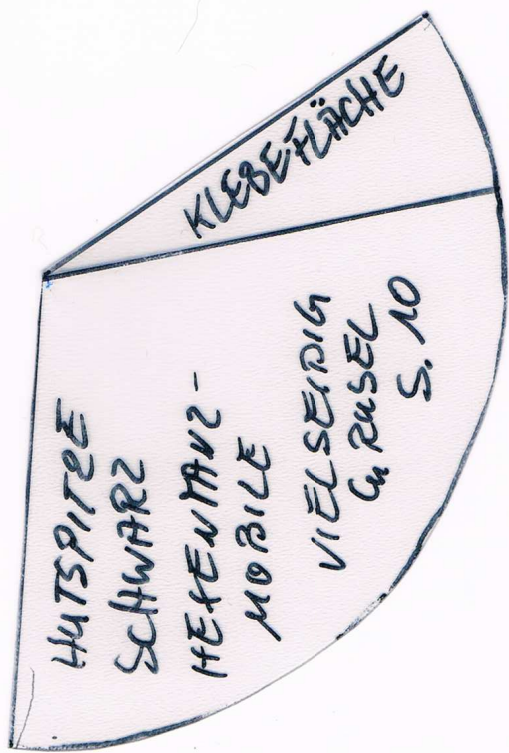 KLEBEFLÄCHE
HUTSPITZE
SCHWARZ
HEXENTANZ-
MOBILE
VIELSEIDIG
GRUSEL
S. 10